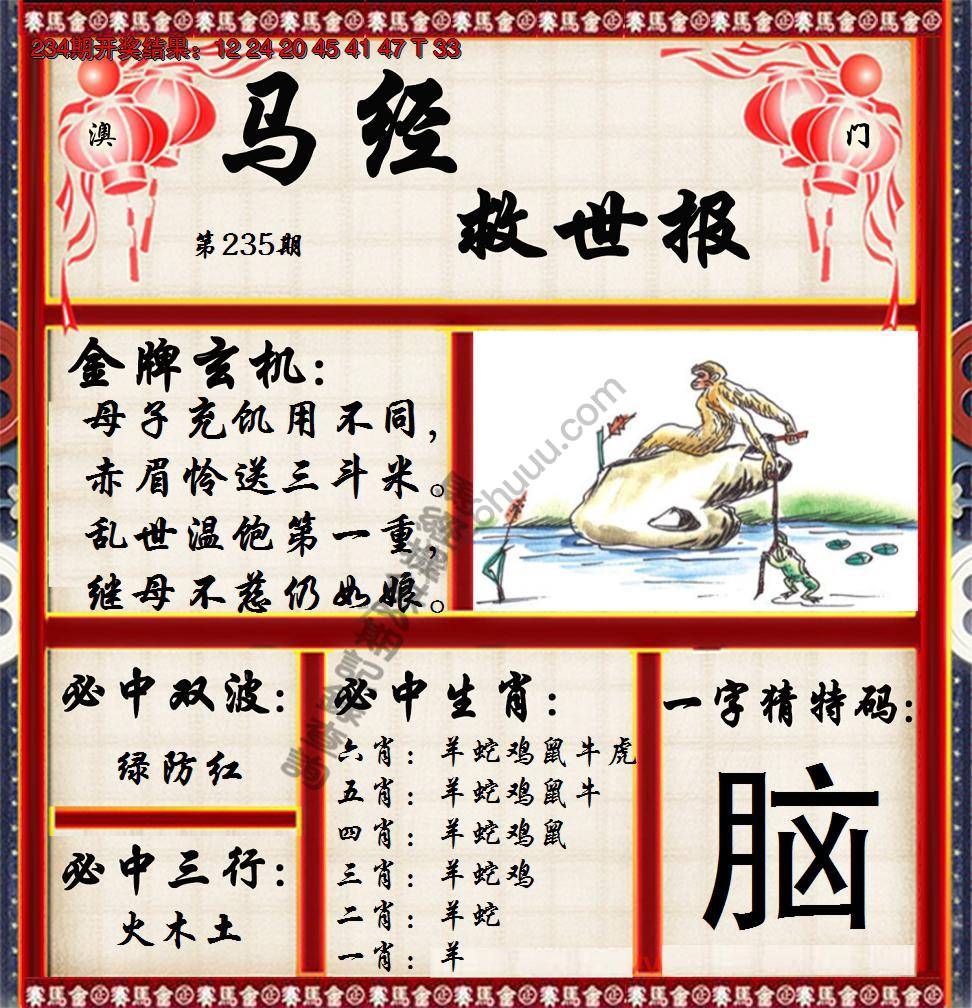 234期开奖结果：12 24 20 45 41 47 T 33
澳 门
马经
救世报
第235期
金牌玄机：
母子充饥用不同，
赤眉怜送三斗米。
乱世温饱第一重，
继母不慈仍如娘。
必中双波：
绿防红
必中三行：
火木土
必中生肖：
六肖：羊蛇鸡鼠牛虎
五肖：羊蛇鸡鼠牛
四肖：羊蛇鸡鼠
三肖：羊蛇鸡
二肖：羊蛇
一肖：羊
一字猜特码：
脑